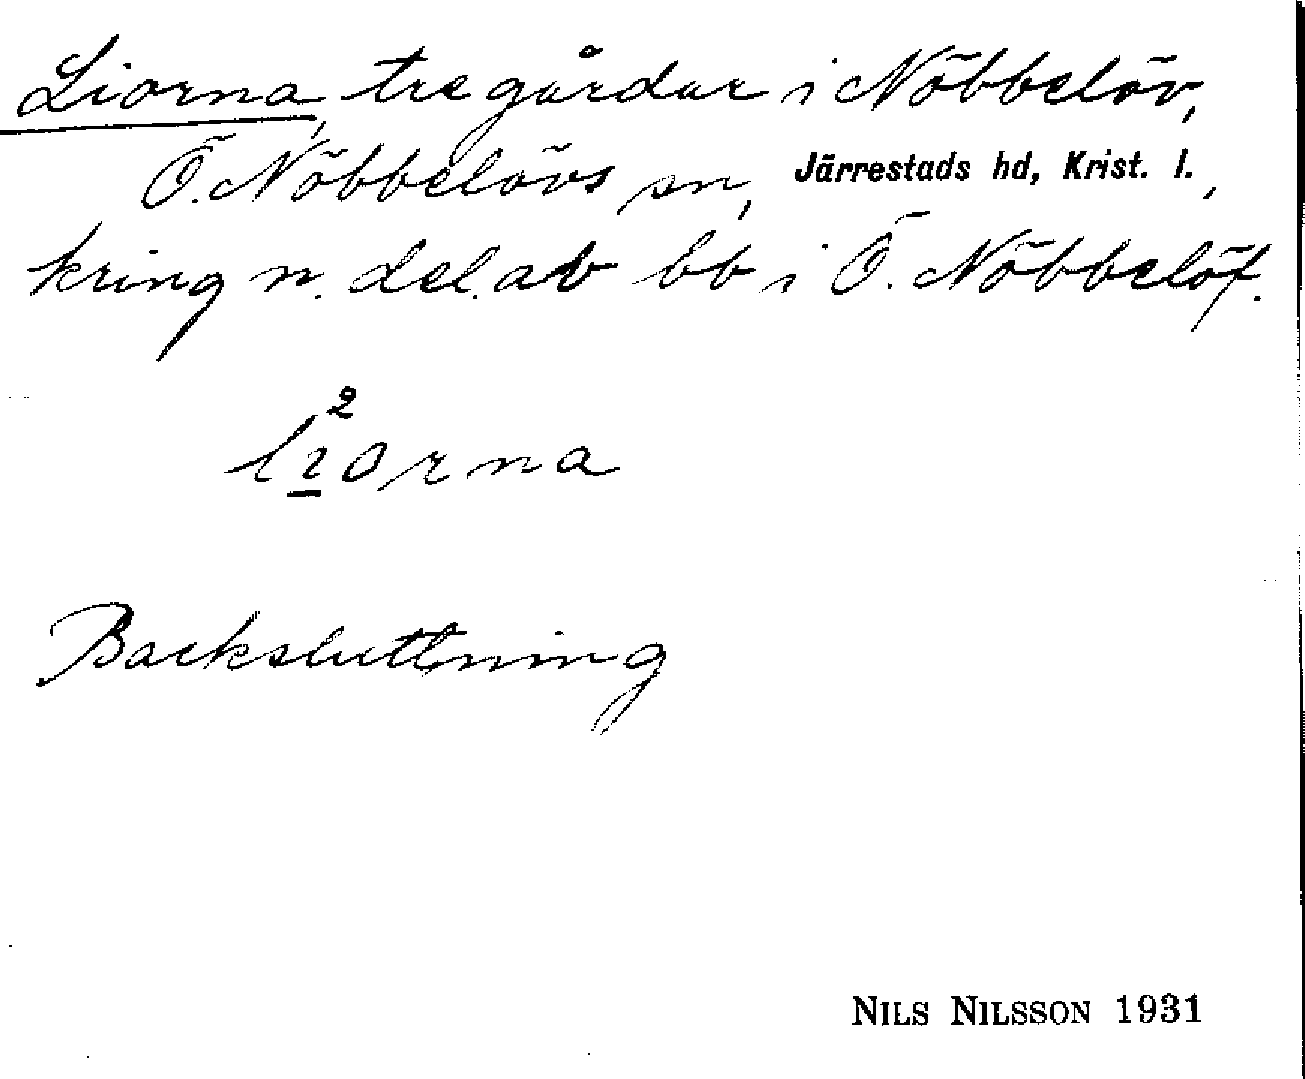 Liorna, tre gårdar i Nöbbelöv,
Ö. Nöbbelövs sn, Järrestads hd, Krist. l.,
kring n. del. av bb i Ö. Nöbbelöf.
2
lıorna
Backsluttning
NILS NILSSON 1931